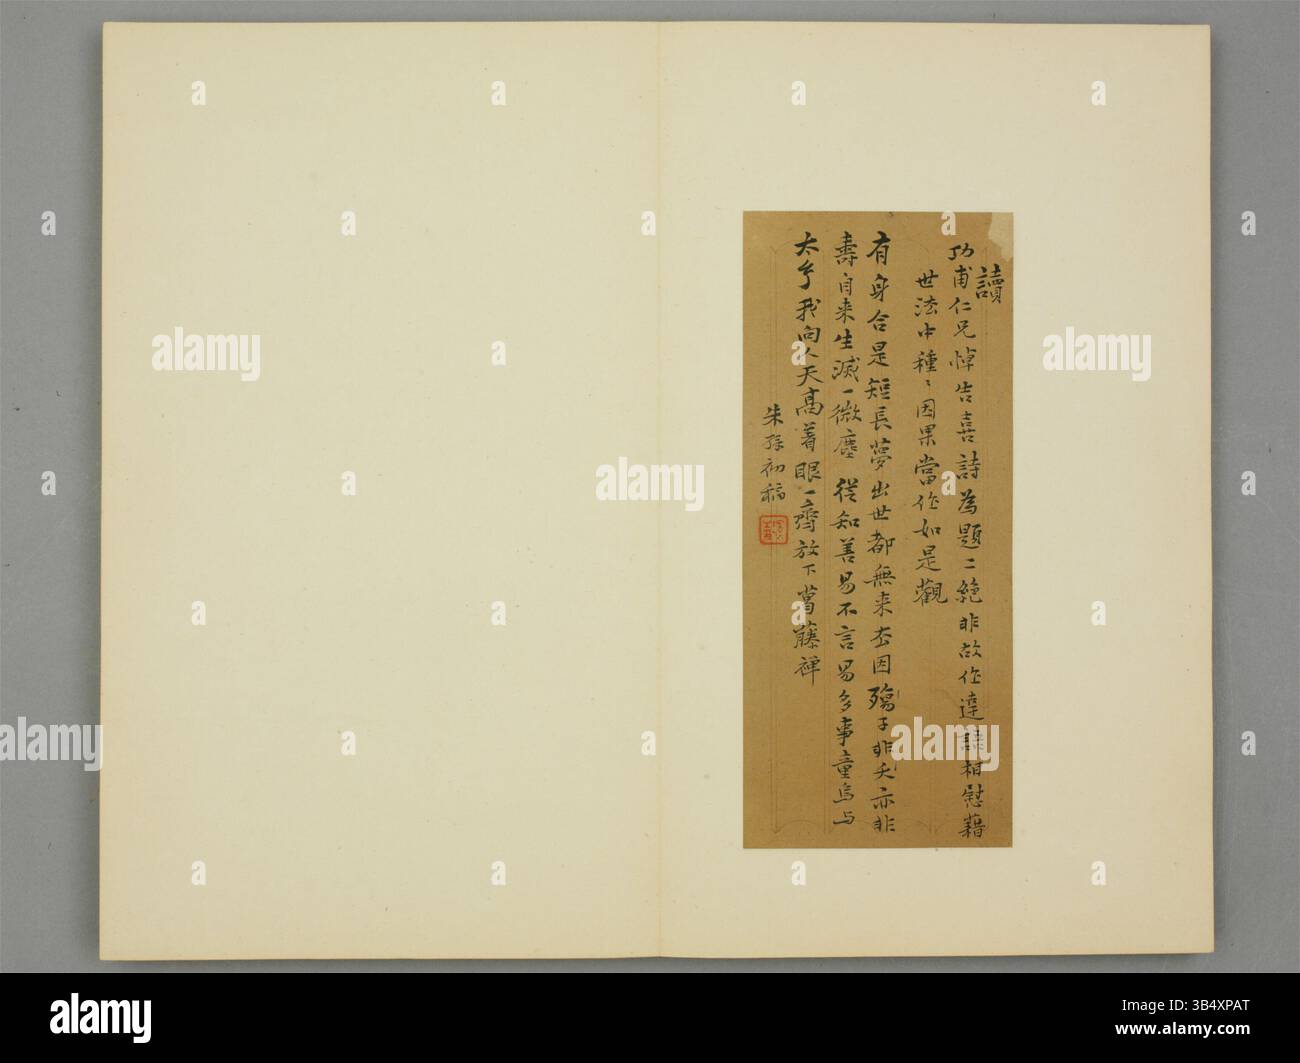 讀
功甫仁兄悼告喜詩為題二絕非故作達語相慰藉
世法中種〻因果當作如是觀
有身合是短長夢出世都無来去因殤子非夭亦非
壽自来生滅一微塵 從知善易不言易多事童烏与
太玄我向人天高着眼一齊放下葛藤禪
朱孫初稿
alamy
Image ID: 3B4XPAT
www.alamy.com